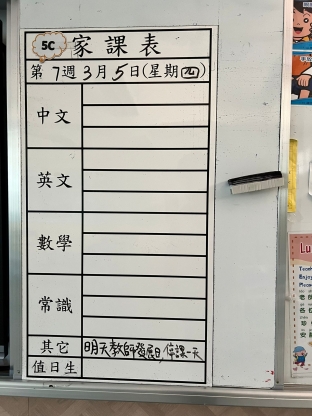 5C 家課表
第7週3月5日(星期四)
中文
英文
數學
常識
其它 明天教師發展日,停課一天
值日生